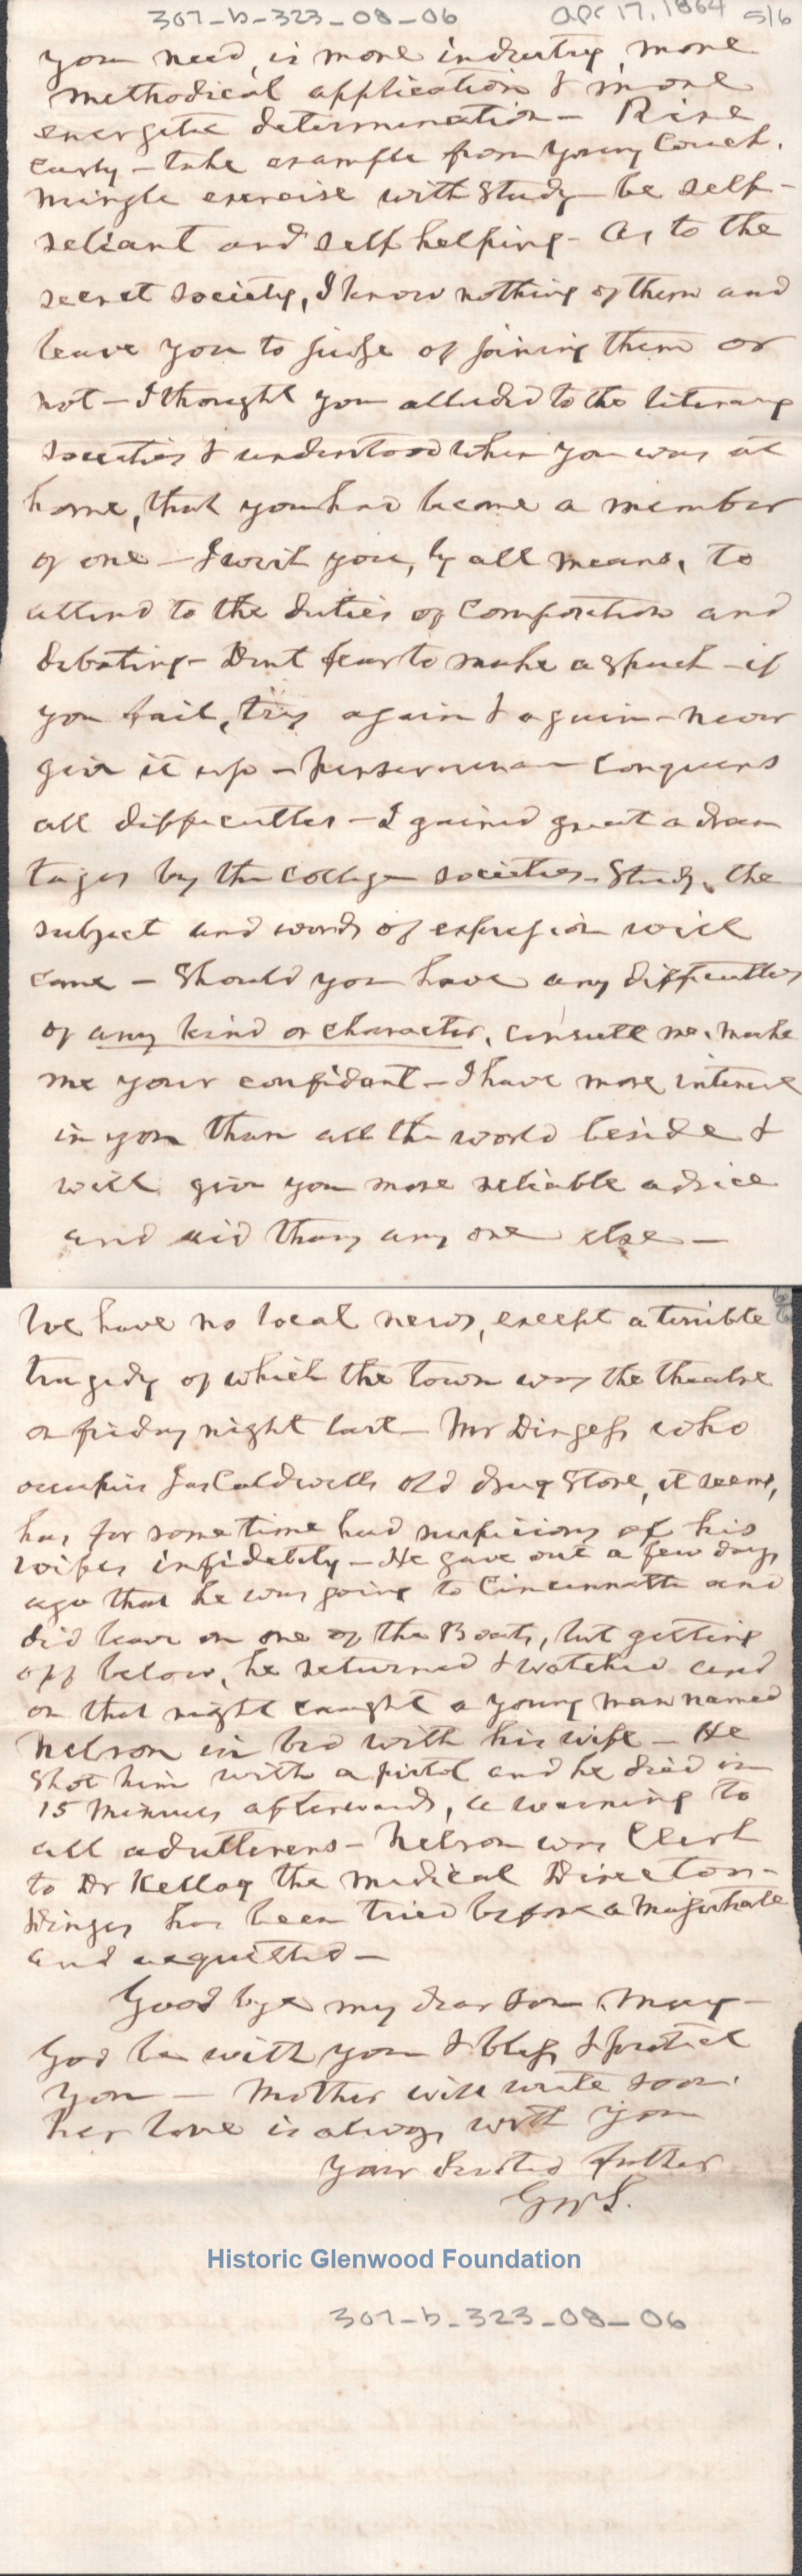 307-b-323-08-06
apr 17, 1864
5/6
you need, is more industry, more
methodical application & more
energetic determination - Rise
early - take example from young Couch.
mingle exercise with study - be self-
reliant and self helping - As to the
secret society, I know nothing of them and
leave you to judge of joining them or
not - I thought you alluded to the literary
societies & understood when you was at
home, that you had become a member
of one - I wish you, by all means, to
attend to the duties of composition and
debating - Dont fear to make a speech - if
you fail, try again & again - never
give it up - perseverance conquers
all difficulties - I gained great advan
tages by the college societies - Study the
subject and words of expression will
come - Should you have any difficulties
of any kind or character, consult me. make
me your confidant - I have more interest
in you than all the world beside &
will give you more reliable advice
and aid than any one else -
We have no local news, except a terrible
tragedy of which the town was the theatre
on friday night last - Mr Dingess who
occupies Jas Caldwells old drug store, it seems,
has for some time had suspicions of his
wifes infidelity - He gave out a few days
ago that he was going to Cincinnatti and
did leave on one of the Boats, but getting
off below, he returned & watched and
on that night caught a young man named
Nelson in bed with his wife - He
shot him with a pistol and he died in
15 minutes afterwards, a warning to
all adulterers - Nelson was Clerk
to Dr Kellog the Medical Director -
Dinges has been tried before a Magistrate
and acquitted -
Good bye my dear son. May
God be with you & bless & protect
you - Mother will write soon.
her love is always with you
Your devoted father
GWS.
Historic Glenwood Foundation
307-b-323-08-06